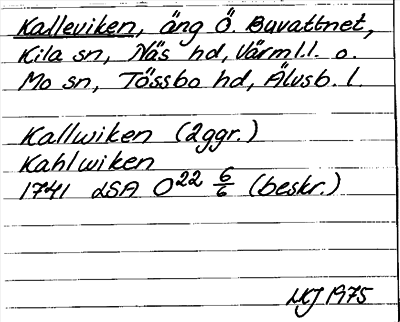 Kalleviken, äng Ö. Buvattnet,
Kila sn, Näs hd, Värml.l. o.
Mo sn, Tössbo hd, Älvsb. l.
Kallwiken (2ggr.)
Kahlwiken
1741 LSA O22 6/6 (beskr.)
MJ 1975